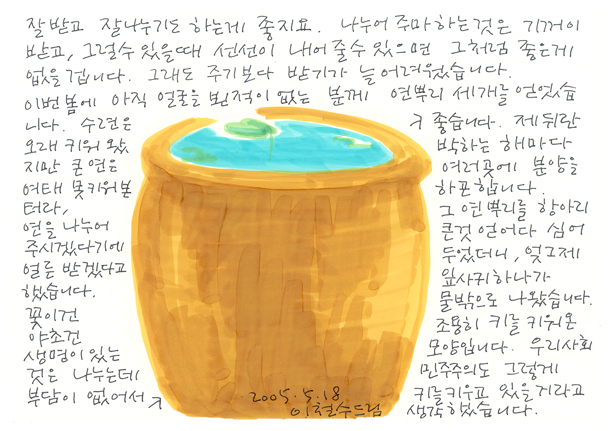 잘 받고 잘 나누기도 하는게 좋지요. 나누어 주마 하는 것은 기꺼이
받고, 그럴 수 있을 때 선선히 내어줄 수 있으면 그처럼 좋은게
없을 겁니다. 그래도 주기보다 받기가 늘 어려웠습니다.
이번 봄에 아직 얼굴을 뵌 적이 없는 분께 연뿌리 세 개를 얻었습
니다. 수련은
오래 키워 왔
지만 큰 연은
여태 못 키워 본
터라,
연을 나누어
주시겠다기에
얼른 받겠다고
했습니다.
꽃이건
야초건
생명이 있는
것은 나누는데
부담이 없어서 ↗
↗ 좋습니다. 제 뒤란
박하는 해마다
여러 곳에 분양을
하곤 합니다.
그 연뿌리를 항아리
큰 것 얻어다 심어
두었더니, 엊그제
잎사귀 하나가
물 밖으로 나왔습니다.
조용히 키를 키워 온
모양입니다. 우리 사회
민주주의도 그렇게
키를 키우고 있을 거라고
생각했습니다.
2005. 5. 18
이철수 드림